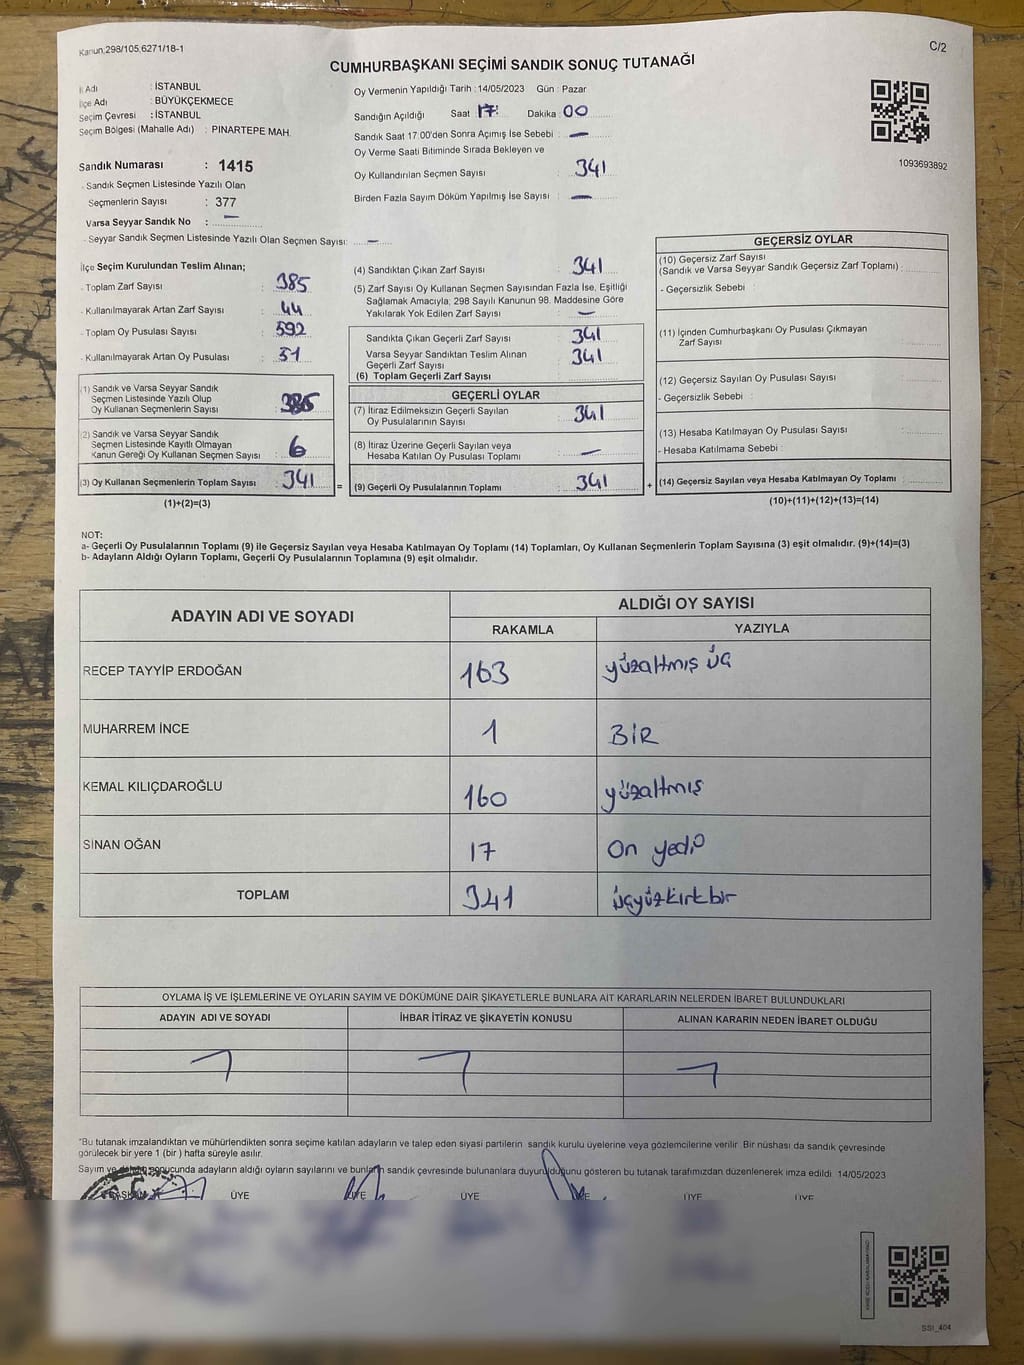 Kanun;298/105,6271/18-1
C/2
CUMHURBAŞKANI SEÇİMİ SANDIK SONUÇ TUTANAĞI
İl Adı : İSTANBUL
İlçe Adı : BÜYÜKÇEKMECE
Seçim Çevresi : İSTANBUL
Seçim Bölgesi (Mahalle Adı) : PINARTEPE MAH.
Sandık Numarası : 1415
- Sandık Seçmen Listesinde Yazılı Olan
Seçmenlerin Sayısı : 377
Varsa Seyyar Sandık No : —
- Seyyar Sandık Seçmen Listesinde Yazılı Olan Seçmen Sayısı: —
Oy Vermenin Yapıldığı Tarih : 14/05/2023 Gün : Pazar
Sandığın Açıldığı Saat 17: Dakika 00
Sandık Saat 17:00'den Sonra Açımış İse Sebebi : —
Oy Verme Saati Bitiminde Sırada Bekleyen ve
Oy Kullandırılan Seçmen Sayısı : 341
Birden Fazla Sayım Döküm Yapılmış İse Sayısı : —
1093693892
İlçe Seçim Kurulundan Teslim Alınan;
- Toplam Zarf Sayısı : 385
- Kullanılmayarak Artan Zarf Sayısı : 44
- Toplam Oy Pusulası Sayısı : 592
- Kullanılmayarak Artan Oy Pusulası : 51
(1) Sandık ve Varsa Seyyar Sandık
Seçmen Listesinde Yazılı Olup
Oy Kullanan Seçmenlerin Sayısı :
(2) Sandık ve Varsa Seyyar Sandık
Seçmen Listesinde Kayıtlı Olmayan
Kanun Gereği Oy Kullanan Seçmen Sayısı : 6
(3) Oy Kullanan Seçmenlerin Toplam Sayısı : 341 =
(1)+(2)=(3)
(4) Sandıktan Çıkan Zarf Sayısı : 341
(5) Zarf Sayısı Oy Kullanan Seçmen Sayısından Fazla İse, Eşitliği
Sağlamak Amacıyla; 298 Sayılı Kanunun 98. Maddesine Göre
Yakılarak Yok Edilen Zarf Sayısı : —
Sandıkta Çıkan Geçerli Zarf Sayısı : 341
Varsa Seyyar Sandıktan Teslim Alınan
Geçerli Zarf Sayısı : 341
(6) Toplam Geçerli Zarf Sayısı :
GEÇERLİ OYLAR
(7) İtiraz Edilmeksizin Geçerli Sayılan
Oy Pusulalarının Sayısı : 341
(8) İtiraz Üzerine Geçerli Sayılan veya
Hesaba Katılan Oy Pusulası Toplamı : —
(9) Geçerli Oy Pusulalarının Toplamı : 341 +
GEÇERSİZ OYLAR
(10) Geçersiz Zarf Sayısı
(Sandık ve Varsa Seyyar Sandık Geçersiz Zarf Toplamı) :
- Geçersizlik Sebebi :
(11) İçinden Cumhurbaşkanı Oy Pusulası Çıkmayan
Zarf Sayısı :
(12) Geçersiz Sayılan Oy Pusulası Sayısı :
- Geçersizlik Sebebi :
(13) Hesaba Katılmayan Oy Pusulası Sayısı :
- Hesaba Katılmama Sebebi :
(14) Geçersiz Sayılan veya Hesaba Katılmayan Oy Toplamı :
(10)+(11)+(12)+(13)=(14)
NOT:
a- Geçerli Oy Pusulalarının Toplamı (9) ile Geçersiz Sayılan veya Hesaba Katılmayan Oy Toplamı (14) Toplamları, Oy Kullanan Seçmenlerin Toplam Sayısına (3) eşit olmalıdır. (9)+(14)=(3)
b- Adayların Aldığı Oyların Toplamı, Geçerli Oy Pusulalarının Toplamına (9) eşit olmalıdır.
ADAYIN ADI VE SOYADI
ALDIĞI OY SAYISI
RAKAMLA YAZIYLA
RECEP TAYYİP ERDOĞAN 163 yüzaltmış üç
MUHARREM İNCE 1 BİR
KEMAL KILIÇDAROĞLU 160 yüzaltmış
SİNAN OĞAN 17 On yedi
TOPLAM 341 üçyüzkırkbir
OYLAMA İŞ VE İŞLEMLERİNE VE OYLARIN SAYIM VE DÖKÜMÜNE DAİR ŞİKAYETLERLE BUNLARA AİT KARARLARIN NELERDEN İBARET BULUNDUKLARI
ADAYIN ADI VE SOYADI İHBAR İTİRAZ VE ŞİKAYETİN KONUSU ALINAN KARARIN NEDEN İBARET OLDUĞU
*Bu tutanak imzalandıktan ve mühürlendikten sonra seçime katılan adayların ve talep eden siyasi partilerin sandık kurulu üyelerine veya gözlemcilerine verilir. Bir nüshası da sandık çevresinde
görülecek bir yere 1 (bir ) hafta süreyle asılır.
Sayım ve döküm sonucunda adayların aldığı oyların sayılarını ve bunların sandık çevresinde bulunanlara duyurulduğunu gösteren bu tutanak tarafımızdan düzenlenerek imza edildi 14/05/2023
BAŞKAN ÜYE ÜYE ÜYE ÜYE ÜYE ÜYE
SSI_404